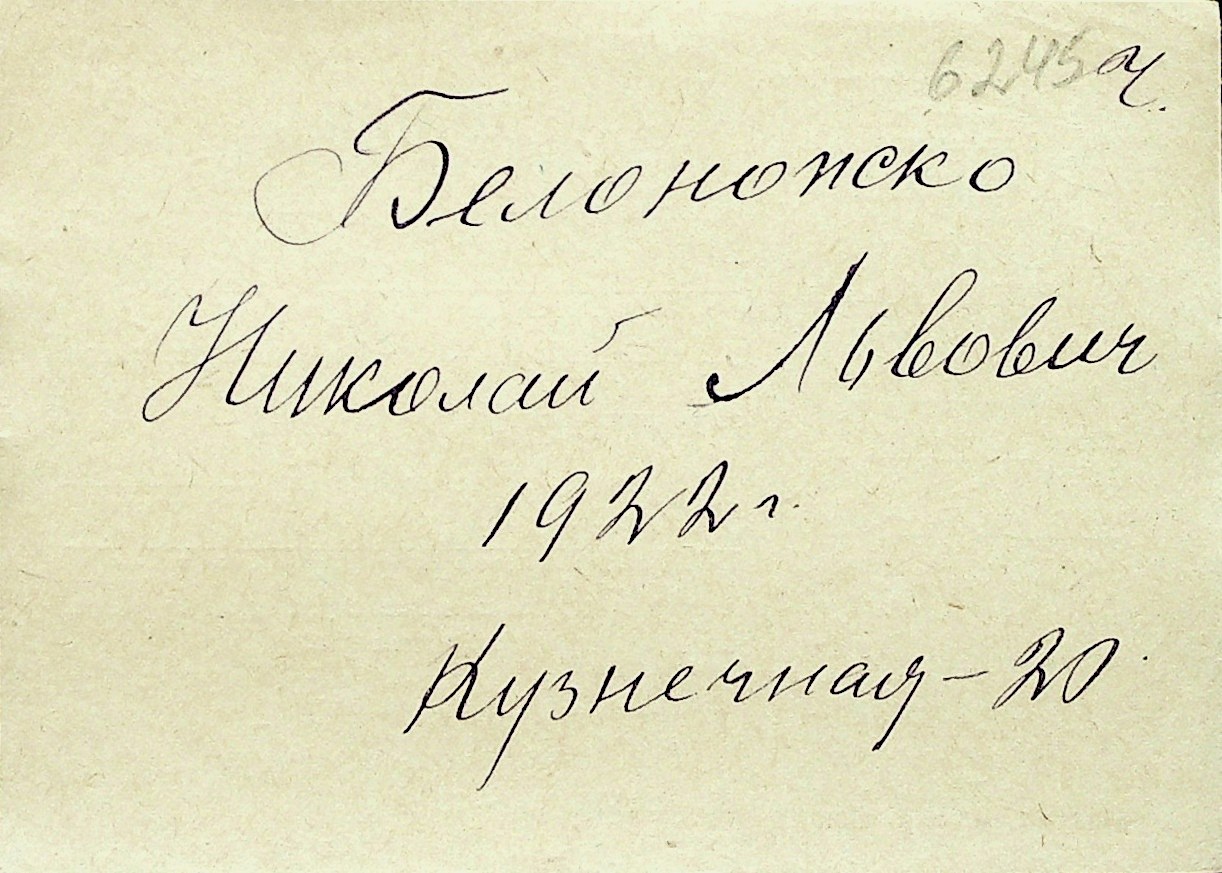 6245 ч.
Белоножско
Николай Львович
1922 г.
Кузнечная – 20.